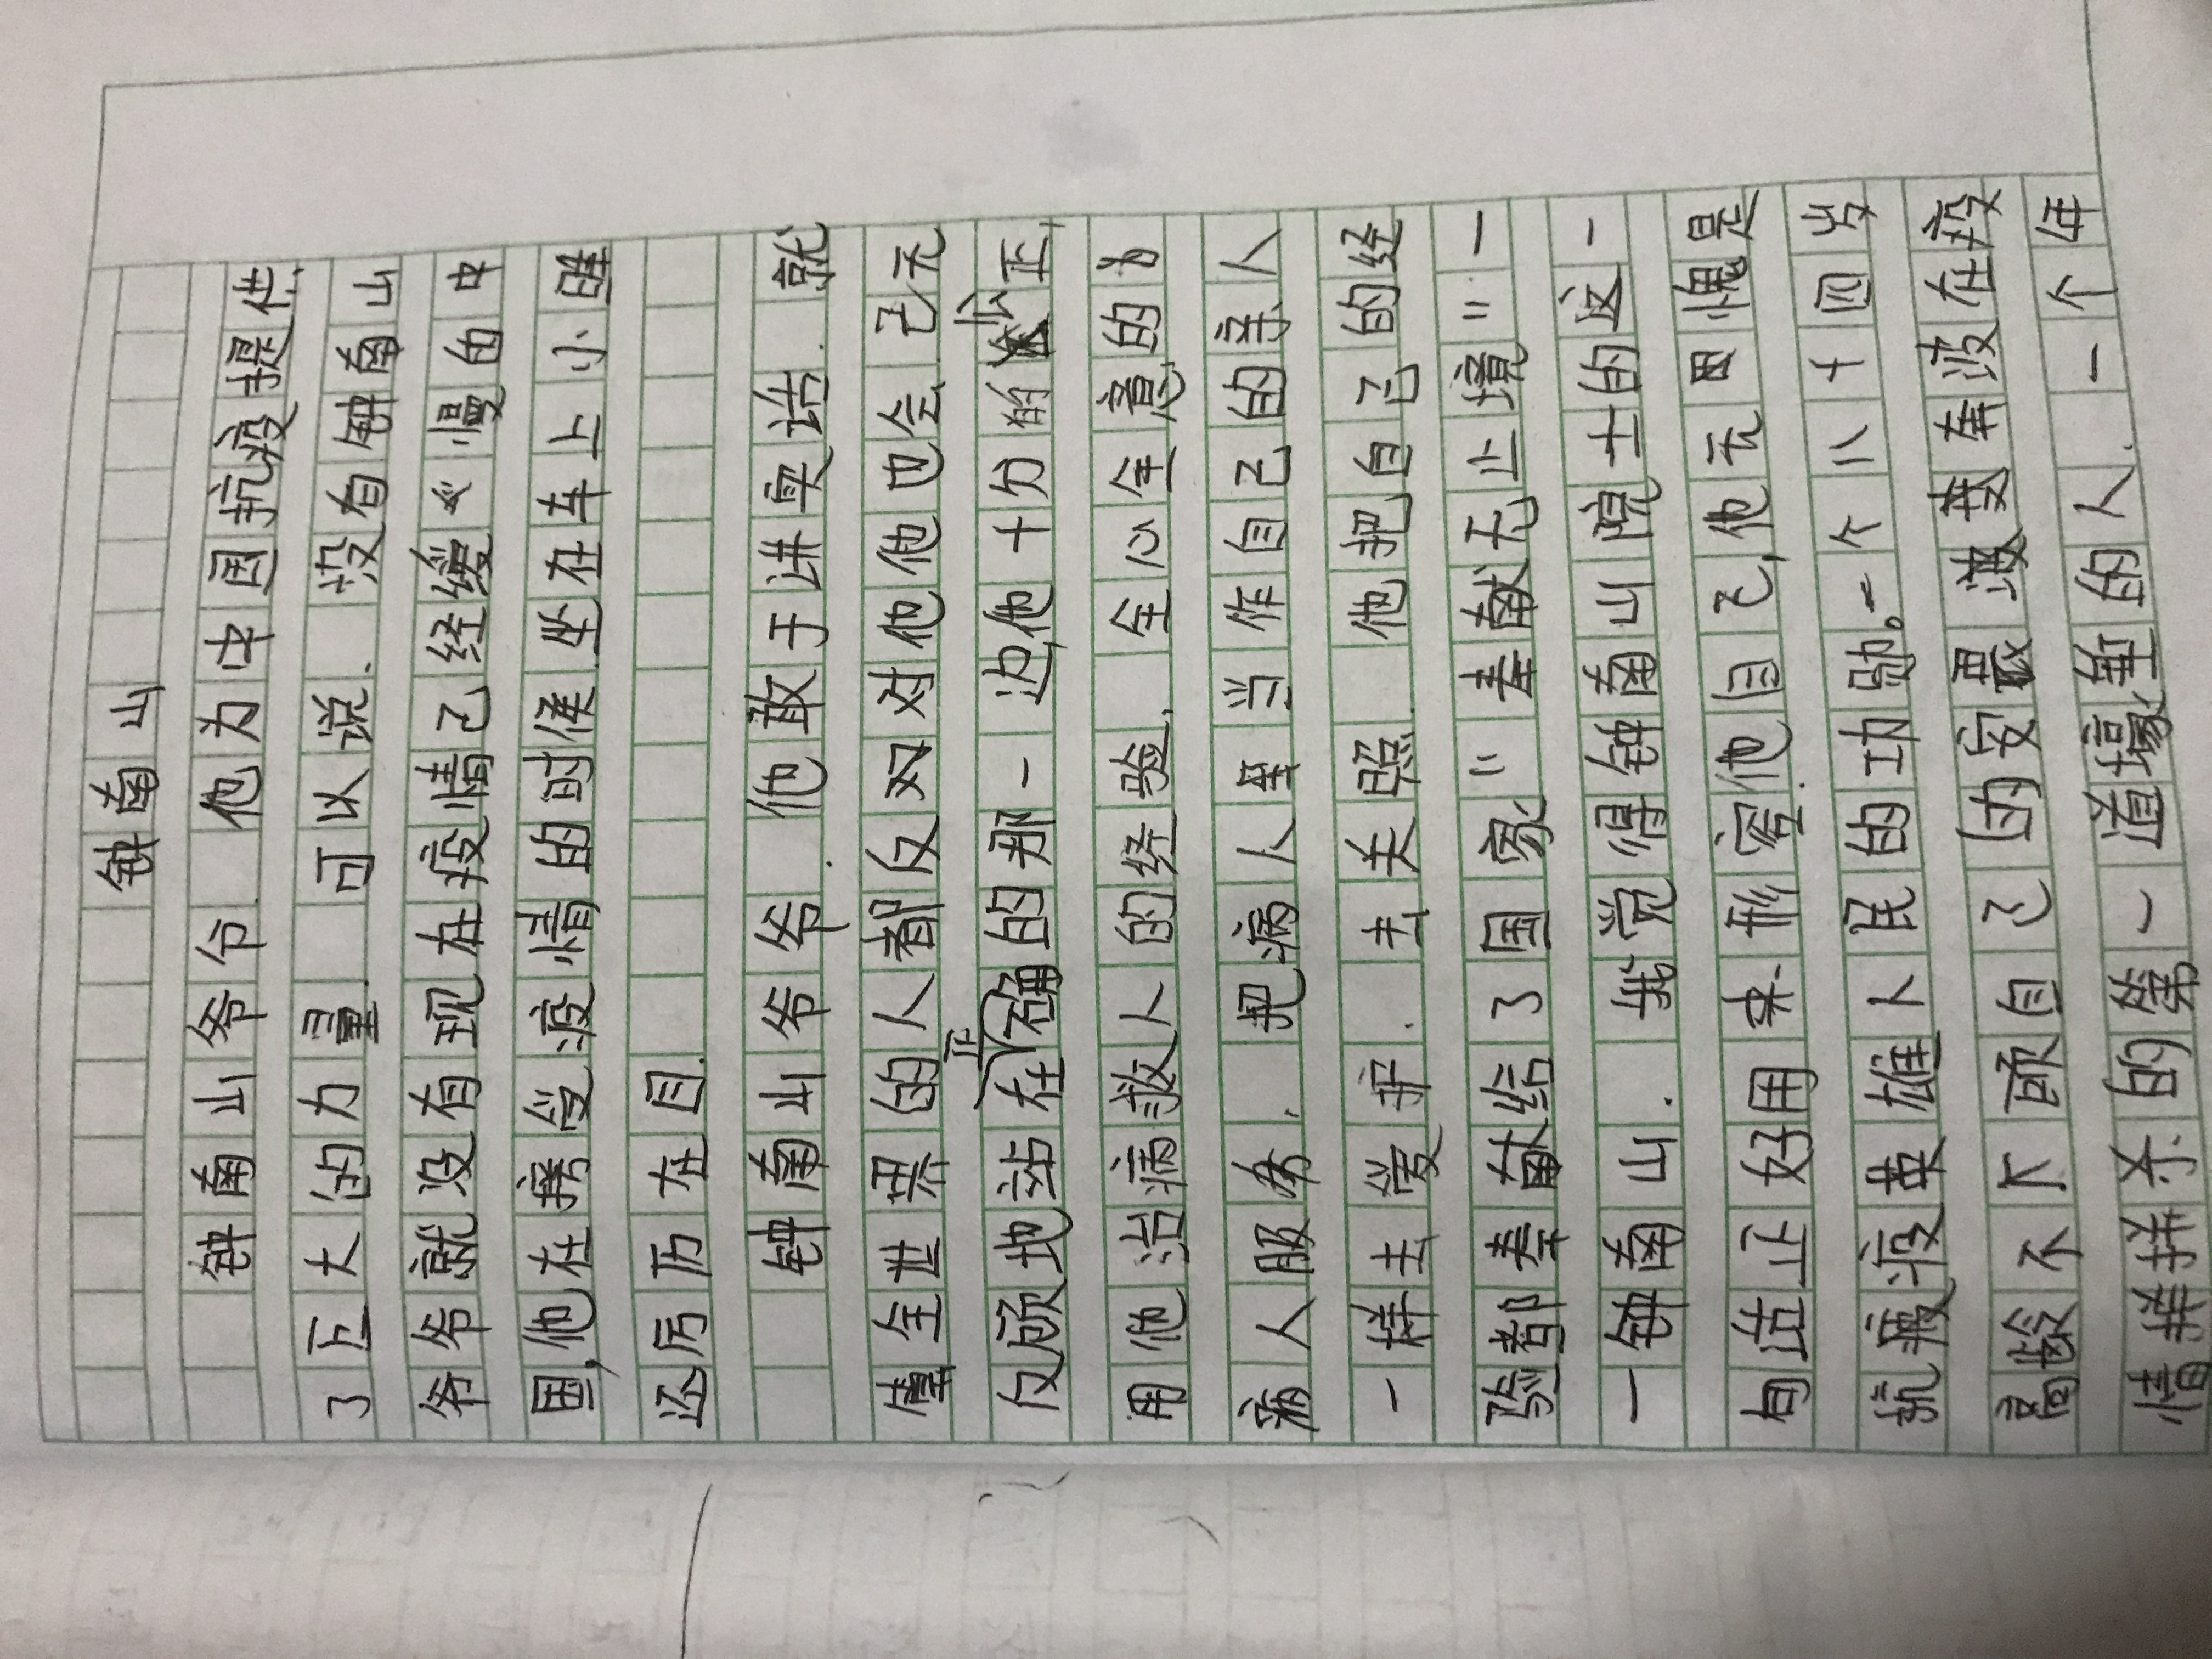 钟南山
钟南山爷爷.他为中国抗疫提供
了巨大的力量.可以说.没有钟南山
爷爷就没有现在疫情已经缓慢的中
国,他在接受疫情的时候坐在车上小睡
还历历在目.
钟南山爷爷.他敢于讲实话.就
全世界的人都反对他他也会.已无
反顾地站在正确的那一边,他十分的公正,
用他治病救人的经验.全心全意的为
病人服务.把病人当作自己的亲人
一样去爱护.去关照.他把自己的经
验都奉献给了国家"奉献无止境"一
一钟南山.我觉得钟南山院士的这一
句话正好用来形容他自己,他无愧是
抗疫英雄人民的功勋。一个八十四岁
高龄不顾自己的安奔波在疫
情拼杀的第一道的人.一个年